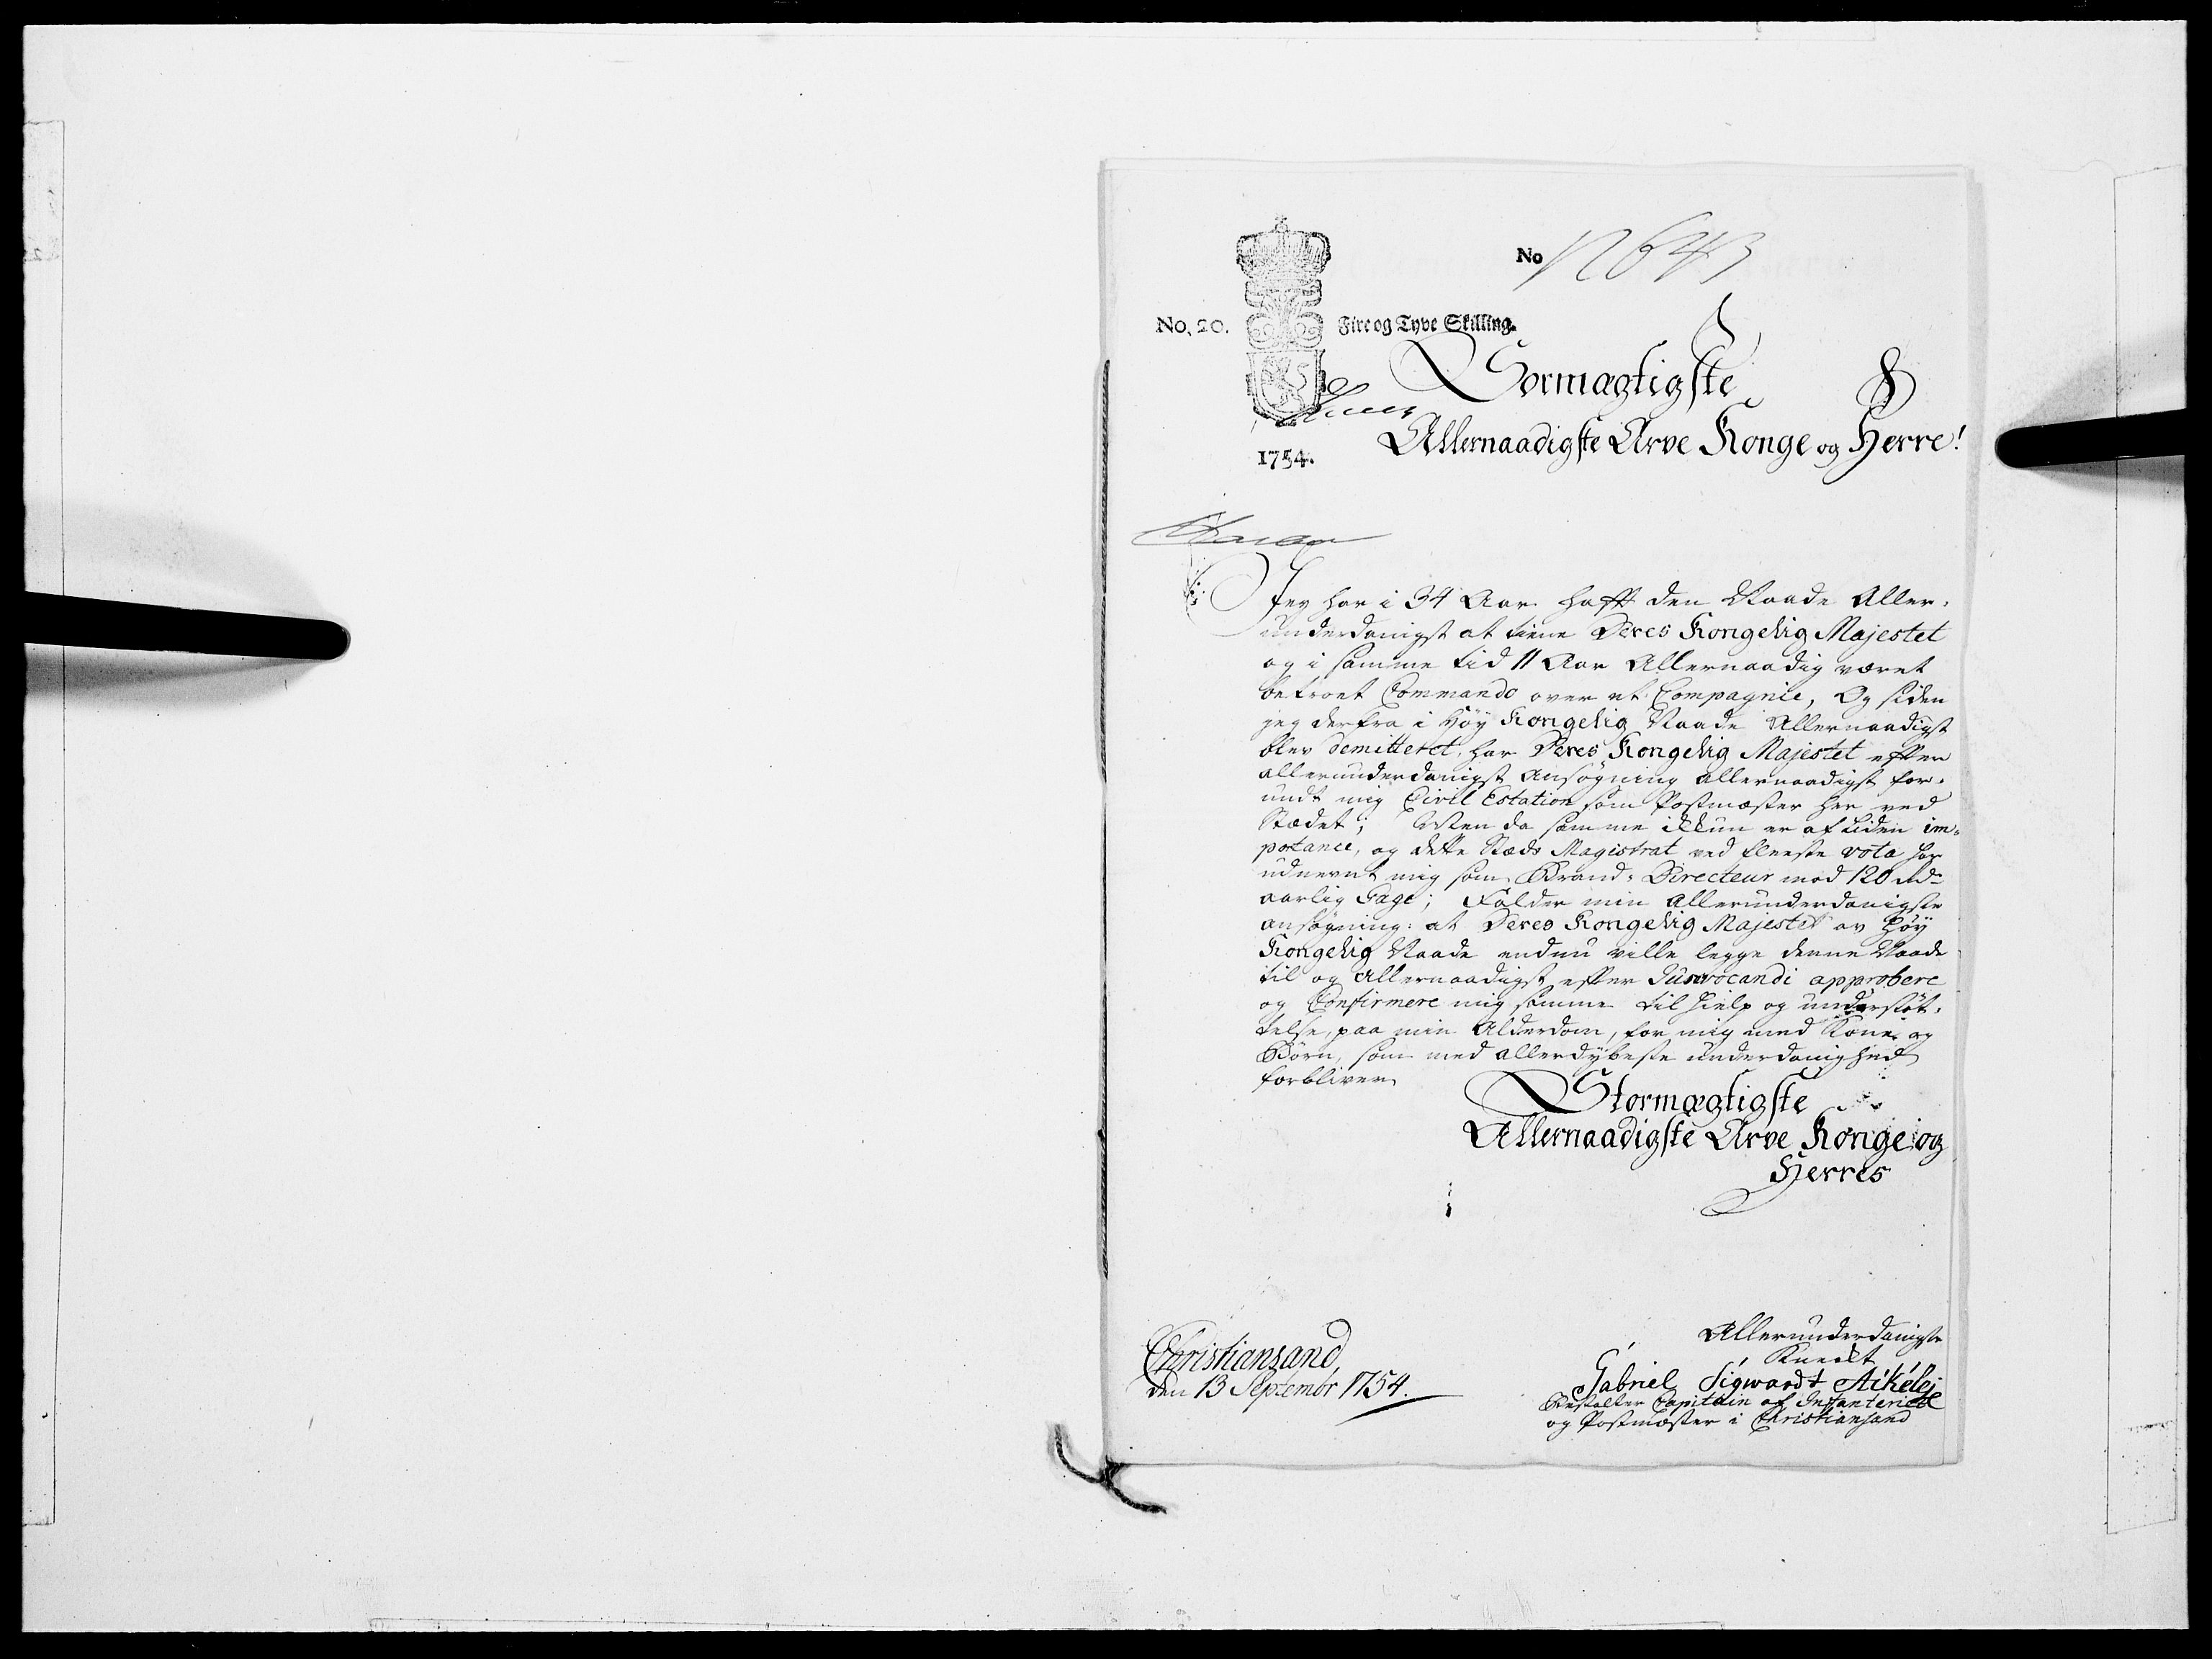 No 12643
No. 20.
Fire og Tyve Skilling.
Stormægtigste
Allernaadigste Arve Konge og Herre!
1754.
Jeg har i 34 Aar hafft den Naade Aller-
underdanigst at tiene Deres Kongelig Majestet
og i samme tid 11 Aar Allernaadig været
betroet Commando over et Compagnie, Og siden
jeg derfra i Høy Kongelig Naade Allernaadigst
blev demitteret, har Deres Kongelig Majestet efter
allerunderdanigst Ansøgning allernaadigst for-
undt mig Civil Estation som Postmæster her ved
Stædet; Men da samme ikkun er af Liden im-
portance, og dette Stæds Magistrat ved fleeste vota har
udnevnt mig som Brand-Directeur med 120 Rdr
aarlig Gage; Falder min Allerunderdanigste
ansøgning: at Deres Kongelig Majestet av Høy
Kongelig Naade endnu ville legge denne Naade
til og Allernaadigst efter Jus vocandi approbere
og Confirmere mig samme til hielp og understøt-
telse, paa min Alderdom, for mig med Kone og
Børn, som med allerdybeste underdanighed
forbliver
Stormægtigste
Allernaadigste Arve Konge og
Herres
Christiansand,
den 13 Septembr 1754.
Allerunderdanigste
Knecht
Gabriel Sigwardt Akeley
Bestalter Capitain af Infanteriet
og Postmæster i Christiansand